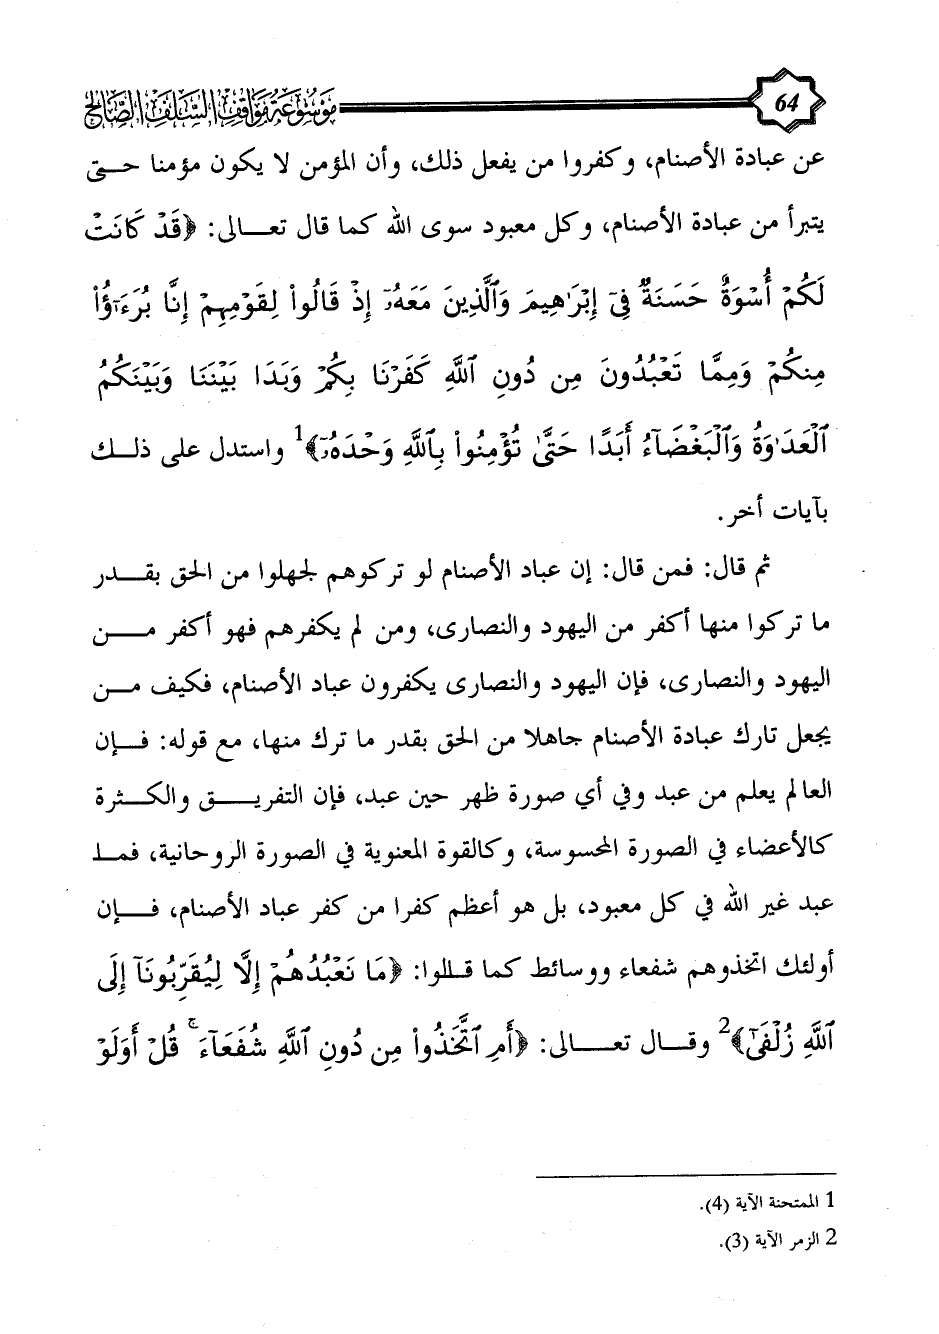 64 موسوعة مواقف السلف الصالح
عن عبادة الأصنام، وكفروا من يفعل ذلك، وأن المؤمن لا يكون مؤمنا حـــتى
يتبرأ من عبادة الأصنام، وكل معبود سوى الله كما قال تعـــالى: ﴿قَدْ كَانَتْ
لَكُمْ أُسْوَةٌ حَسَنَةٌ فِىٓ إِبْرَٰهِيمَ وَٱلَّذِينَ مَعَهُۥٓ إِذْ قَالُوا۟ لِقَوْمِهِمْ إِنَّا بُرَءَٰٓؤُا۟
مِنكُمْ وَمِمَّا تَعْبُدُونَ مِن دُونِ ٱللَّهِ كَفَرْنَا بِكُمْ وَبَدَا بَيْنَنَا وَبَيْنَكُمُ
ٱلْعَدَٰوَةُ وَٱلْبَغْضَآءُ أَبَدًا حَتَّىٰ تُؤْمِنُوا۟ بِٱللَّهِ وَحْدَهُۥٓ﴾1 واستدل على ذلـــك
بآيات أخر.
ثم قال: فمن قال: إن عباد الأصنام لو تركوهم لجهلوا من الحق بقـــدر
ما تركوا منها أكفر من اليهود والنصارى، ومن لم يكفرهم فهو أكفر مـــن
اليهود والنصارى، فإن اليهود والنصارى يكفرون عباد الأصنام، فكيف مـــن
يجعل تارك عبادة الأصنام جاهلا من الحق بقدر ما ترك منها، مع قوله: فـــإن
العالم يعلم من عبد وفي أي صورة ظهر حين عبد، فإن التفريـــق والكـــثرة
كالأعضاء في الصورة المحسوسة، وكالقوة المعنوية في الصورة الروحانية، فمـا
عبد غير الله في كل معبود، بل هو أعظم كفرا من كفر عباد الأصنام، فـــإن
أولئك اتخذوهم شفعاء ووسائط كما قـالوا: ﴿مَا نَعْبُدُهُمْ إِلَّا لِيُقَرِّبُونَآ إِلَى
ٱللَّهِ زُلْفَىٰٓ﴾2 وقـــال تعـــالى: ﴿أَمِ ٱتَّخَذُوا۟ مِن دُونِ ٱللَّهِ شُفَعَآءَ ۚ قُلْ أَوَلَوْ
1 الممتحنة الآية (4).
2 الزمر الآية (3).